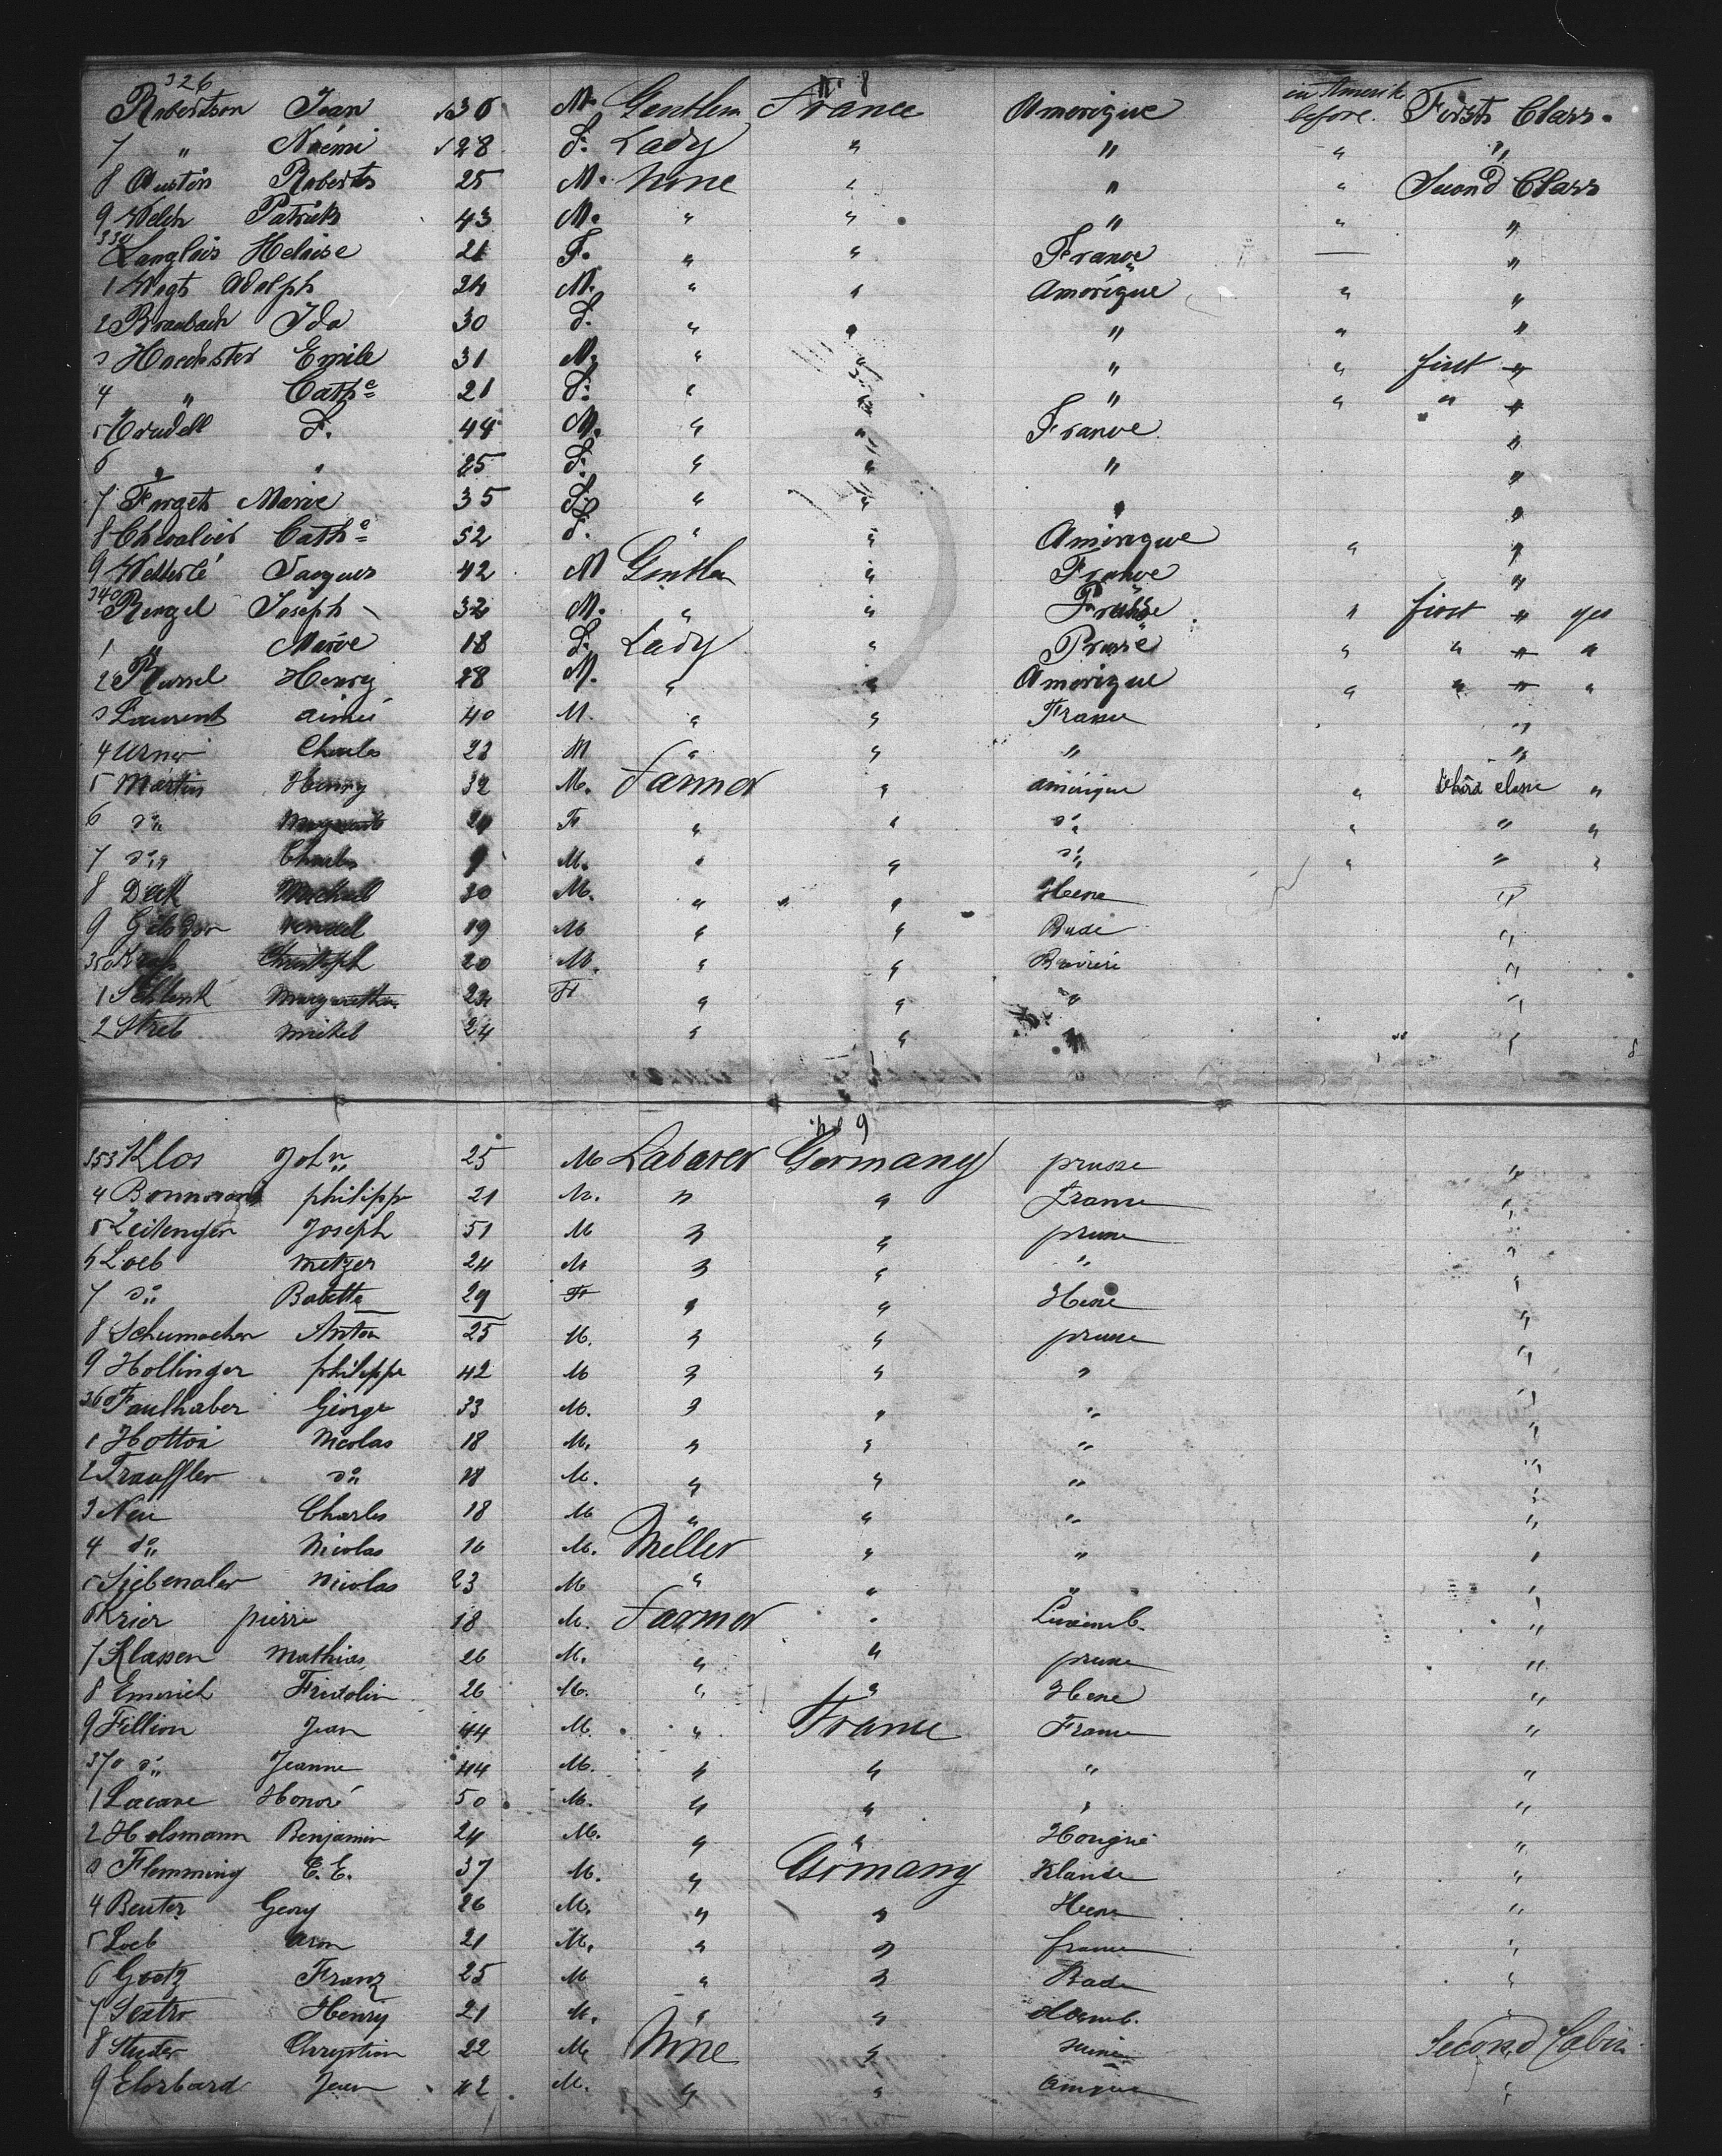 326 N. 8
Robertson Jean 36 M. Gentlem France Amerique in Amerik before. First Class.
7 " Noémi 28 F. Lady " " " "
8 Austin Roberts 25 M. None " " " Second Class
9 Welch Patrick 43 M. " " " " "
330 Langlois Heloise 21 F. " " France — "
1 Vogt Adolph 24 M. " " Amérique " "
2 Braubach Ida 30 F. " " " " "
3 Hoechster Emile 31 M. " " " " first "
4 " Cathe 21 F. " " " " " "
5 Crudell F. 44 M. " " France "
6 " " 25 F. " " " "
7 Forget Marie 35 F. " " " "
8 Chevalier Cathe 52 F. " " Amérique " "
9 Wetterlé Jacques 42 M Gentlem " France "
340 Rengel Joseph 32 M. " " " first " yes
1 " Marie 18 F. Lady " Prusse " " " "
2 Russel Henry 28 M. " " Amerique " " " "
3 Laurent aimé 40 M. " " France "
4 Urner Charles 23 M " " " "
5 Martin Henry 32 M. Farmer " amérique " third classe "
6 do " F " " do " " "
7 do Charles M. " " do " " "
8 Deck Michael 30 M. " " Hesse "
9 19 M " " Bade "
350 Christoph 20 M. " " Baviere "
1 Schlenk Margaretha 24 F " " " "
2 Streb mikel 24 " " " "
No 9
353 Klos John 25 M Laborer Germany prusse "
4 philippe 21 M. " " France "
5 Zeitenger Joseph 51 M " " prusse "
6 Loeb metzger 24 M " " " "
7 do Babette 29 F " " Hesse "
8 Schumacher Anton 25 M. " " prusse "
9 Hollinger philippe 42 M " " " "
360 Faulhaber George 33 M. " " " "
1 Hottoi Nicolas 18 M. " " " "
2 Trauffler do 18 M. " " " "
3 Neu Charles 18 M " " " "
4 do Nicolas 16 M. Meller " " "
5 Siebenaler Nicolas 23 M " " " "
6 Krier pierre 18 M. Farmer " Luxemb. "
7 Klassen Mathias 26 M. " " prusse "
8 Emerich Fridolin 26 M. " " Hesse "
9 Fillion Jean 44 M. " France France "
370 do Jeanne 44 M. " " " "
1 Lacave Honoré 50 M. " " " "
2 Holsmann Benjamin 24 M. " " Hongrie "
3 Flemming E. E. 37 M. " Germany "
4 Beuter Georg 26 M. " " Hesse "
5 Loeb Aron 21 M. " " france "
6 Goetz Franz 25 M " " Bade "
7 Sextro Henry 21 M. " " "
8 Studer Chryptian 22 M. None " Second Cabin
9 Jean 42 M. " " "